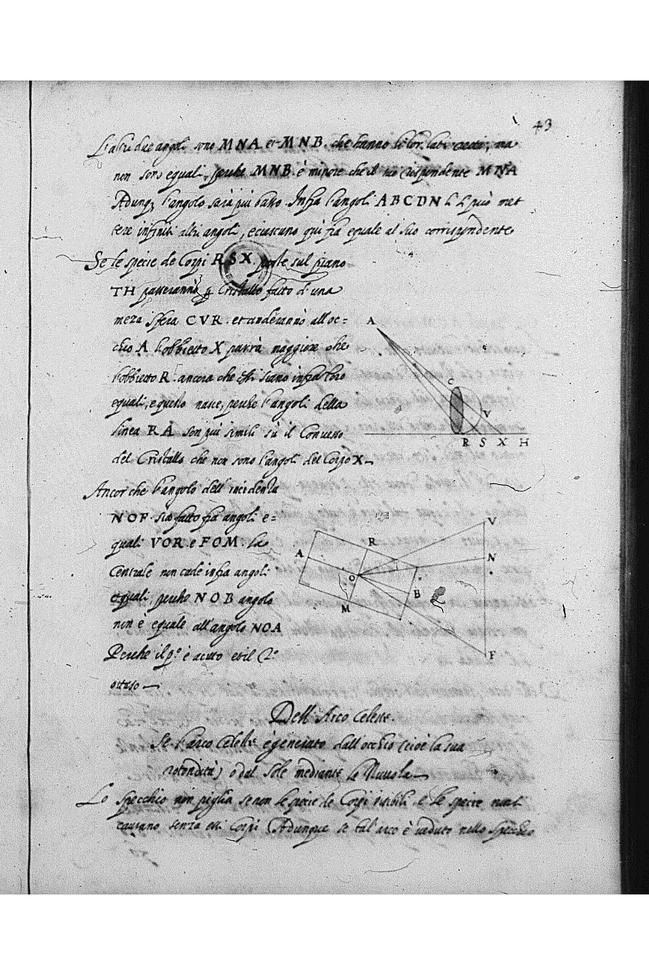 43
L'altri due angoli sono MNA et MNB, che hanno li lor lati ma
non sono equali, perche MNB è minore che il suo rispondente MNA
Adunq l'angolo sarà piu basso Infra l'angoli ABCDN si può met
tere infiniti altri angoli, e ciascuno qui fia equale al suo corrispondente
Se le specie de Corpi RSX poste sul piano
TH passeranno p Cristallo fatto d'una
meza sfera CVR. et anderanno all'oc=
chio A l'obbietto X parrà maggiore che
l'obbietto R ancora che siano infra loro
equali, e questo nasce, perche l'angoli della
linea RA son piu simili su il Convesso
del Cristallo che non sono l'angoli del Corpo X
A
C
V
R S X H
Ancor che l'angolo dell'incidentia
NOF sia fatto fra angoli e=
quali VOR e FOM. la
Centrale non cade infra angoli
equali, perche NOB angolo
non è equale all'angolo NOA
Perche il p.º è acuto et il 2.º
ottuso
V
R
N
A
O
B
M
F
Dell'Arco Celeste
Se l'arco Celeste è generato dall'occhio (cioè la sua
rotondità) o dal Sole mediante la Nuvola
Lo Specchio non piglia se non le specie de Corpi visibili e le specie non si
causano senza essi Corpi Adunque se tal'arco è veduto nello specchio